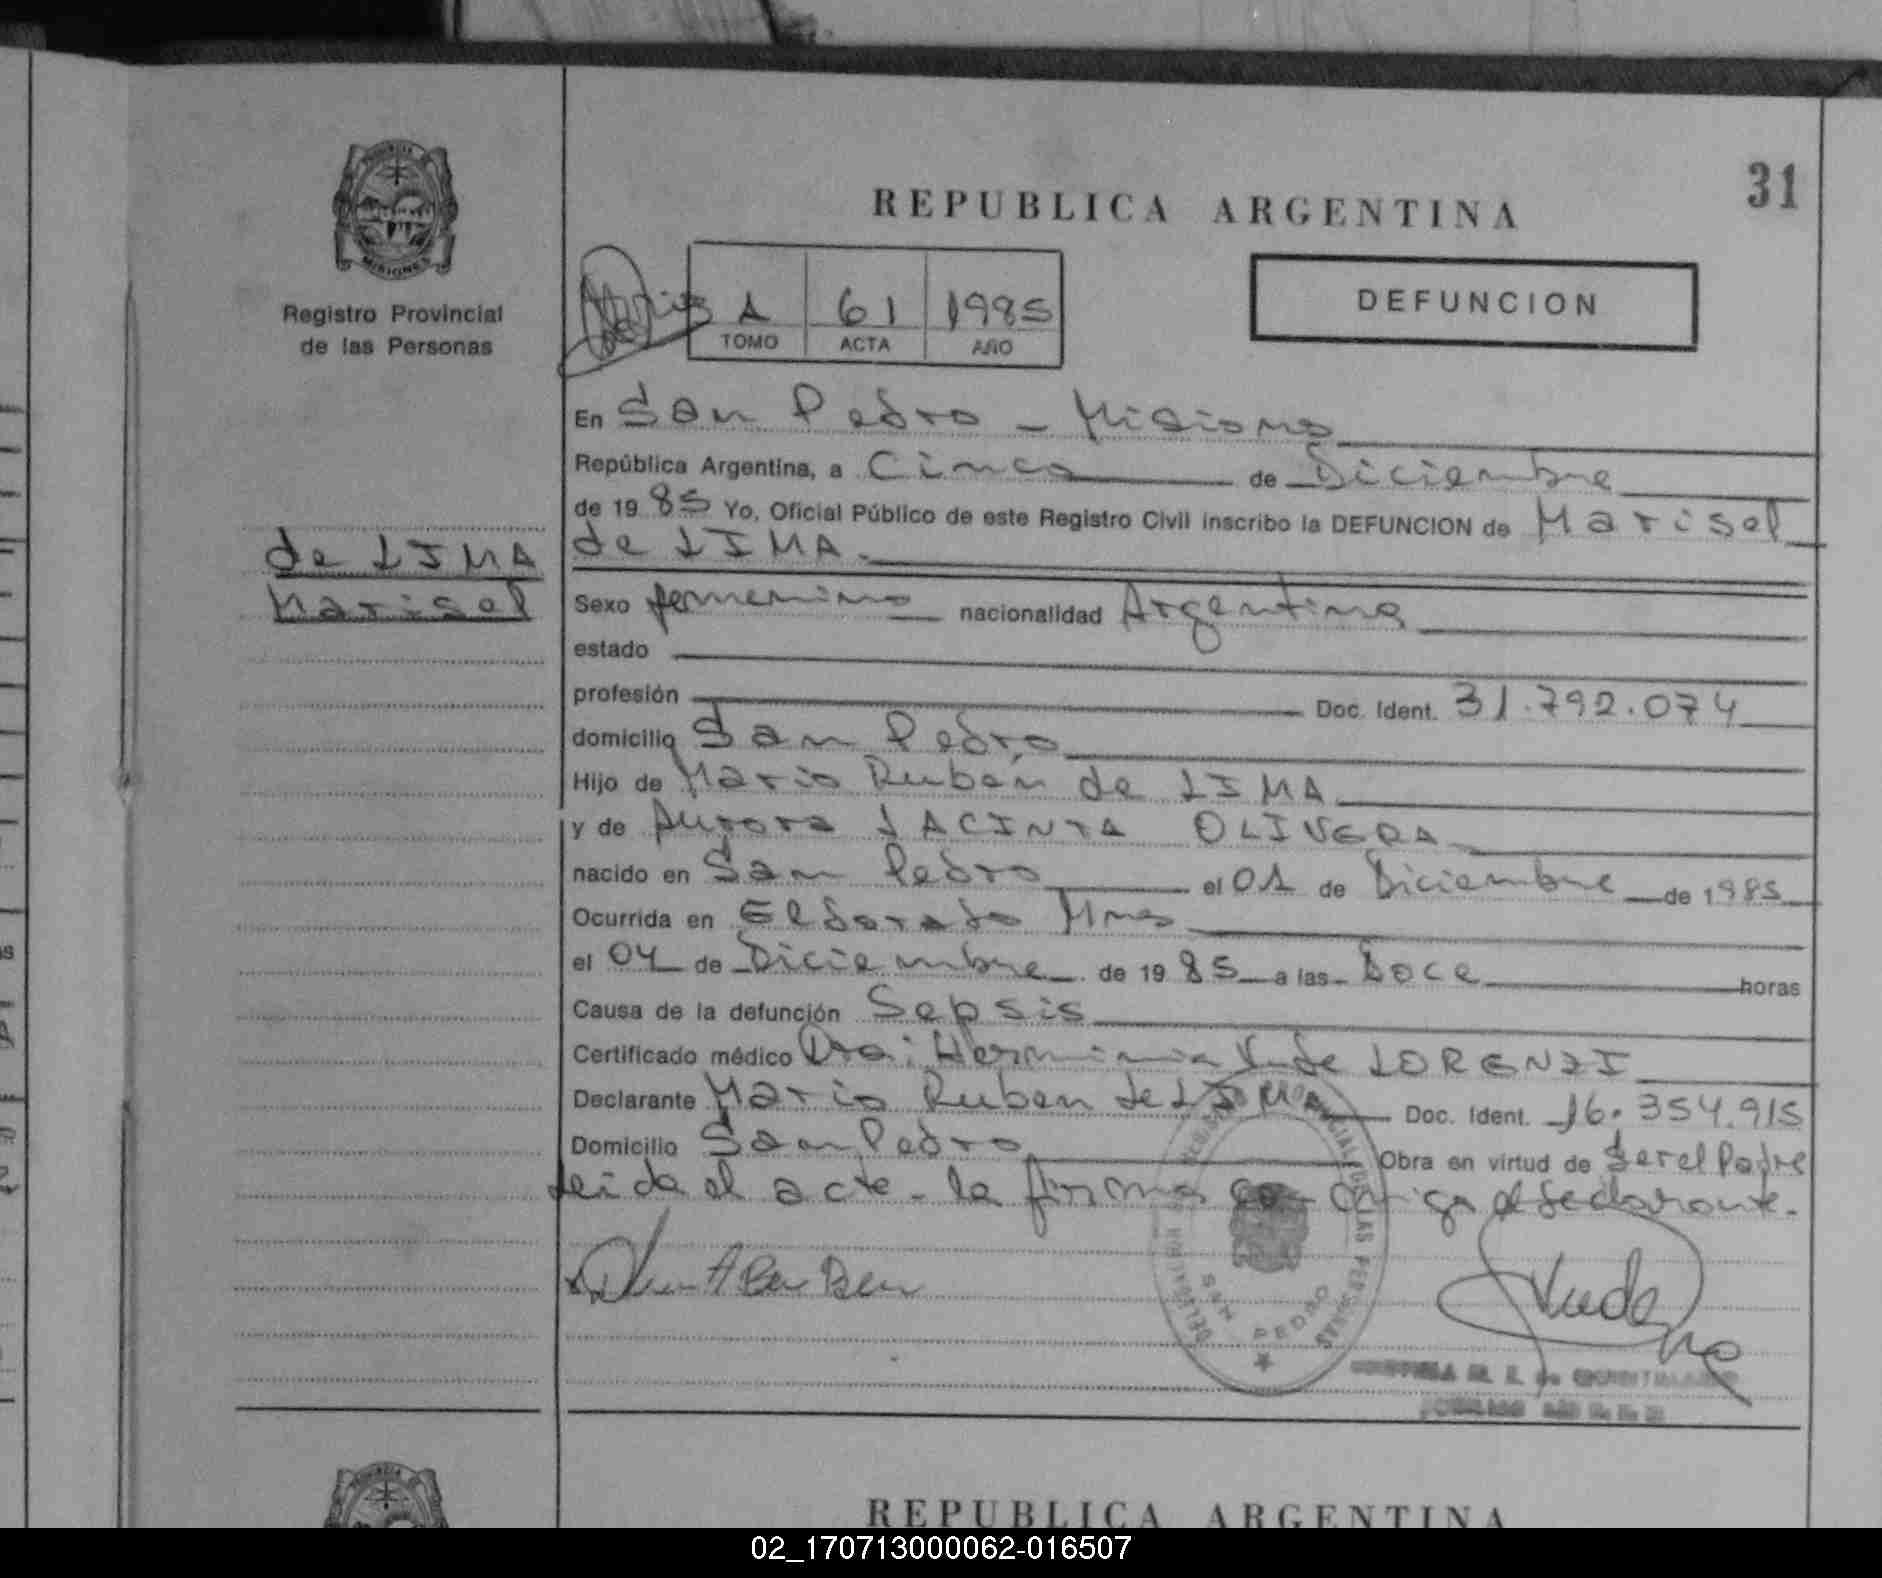 31
REPUBLICA ARGENTINA
PROVINCIA
MISIONES
Registro Provincial
de las Personas
A 61 1985
TOMO ACTA AÑO
DEFUNCION
En San Pedro - Misiones
República Argentina, a Cinco de Diciembre
de 1985 Yo, Oficial Público de este Registro Civil inscribo la DEFUNCION de Marisel
de LIMA.
de LIMA
Marisel
Sexo femenino nacionalidad Argentina
estado
profesión Doc. Ident. 31.792.074
domicilio San Pedro
Hijo de Mario Rubén de LIMA
y de Aurora JACINTA OLIVERA
nacido en San Pedro el 01 de Diciembre de 1985
Ocurrida en Eldorado Mnes
el 04 de Diciembre de 1985 a las Doce horas
Causa de la defunción Sepsis
Certificado médico Dra: Herminia V. de LORENZI
Declarante Mario Ruben de LIMA Doc. Ident. 16.354.915
Domicilio San Pedro Obra en virtud de Ser el Padre
Leida el acta - la firma el declarante.
SAN PEDRO
REPUBLICA ARGENTINA
02_170713000062-016507